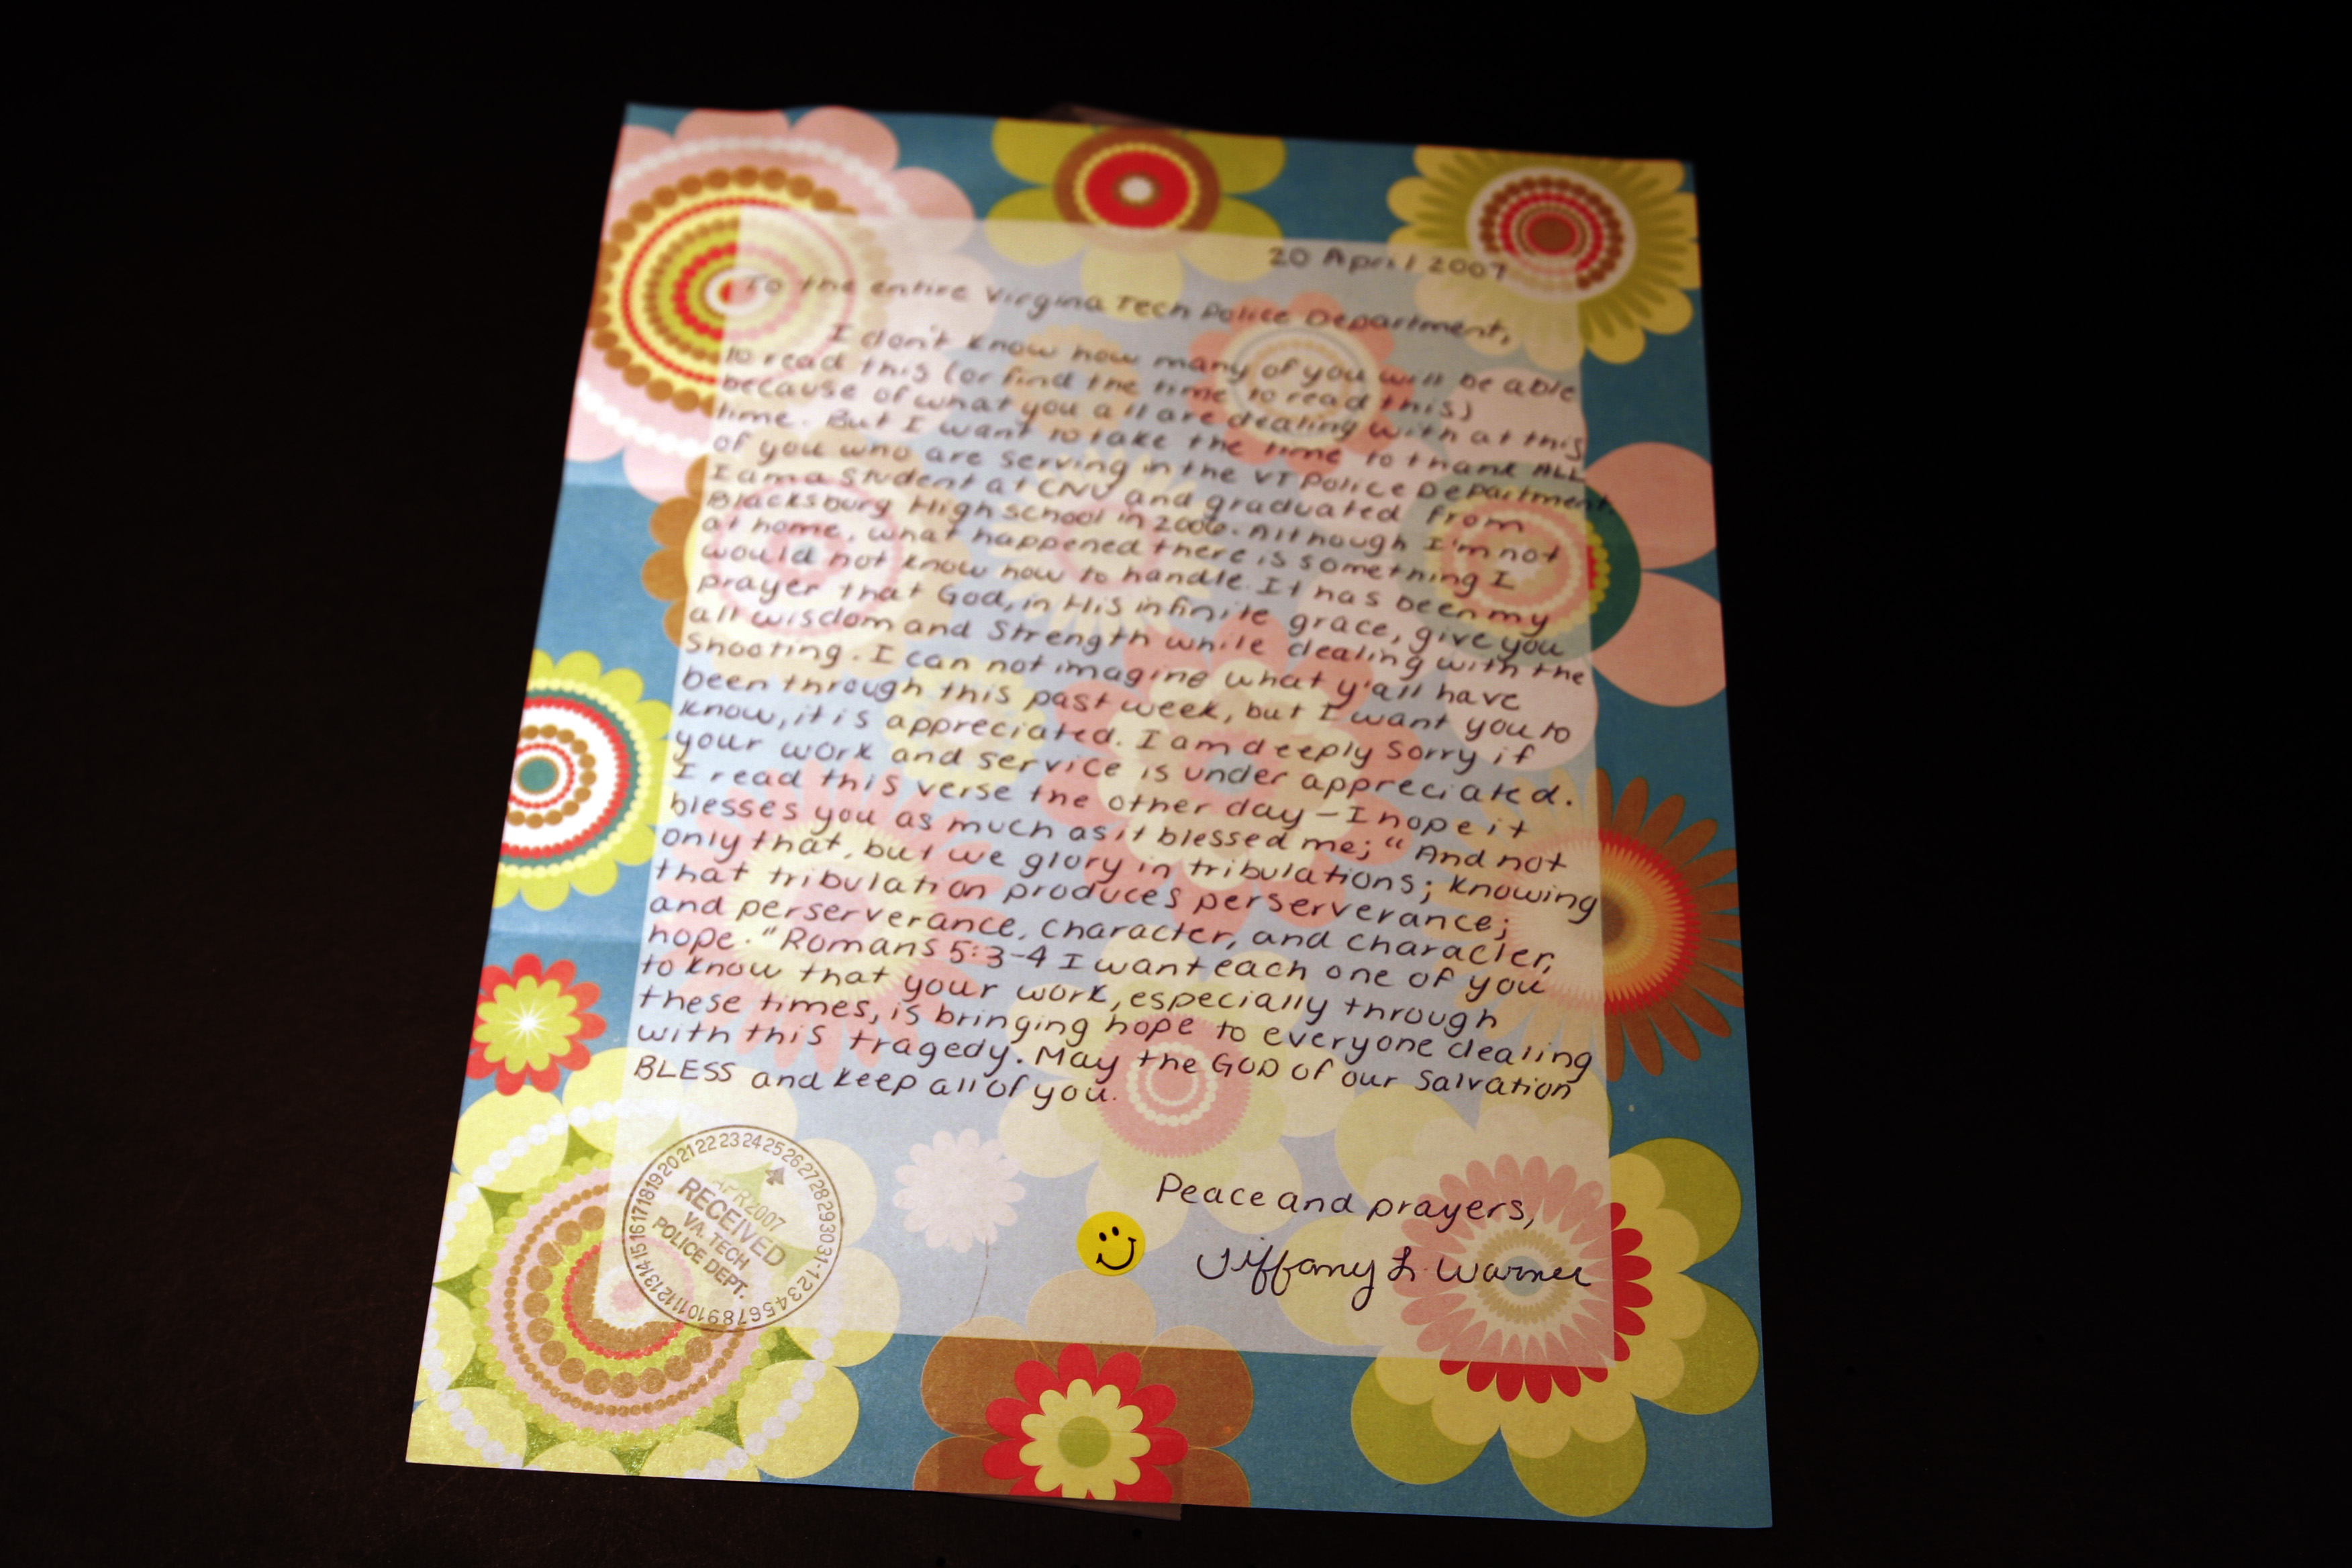 20 April 2007
To the entire Virgina Tech Police Department,
I don't know how many of you will be able
to read this (or find the time to read this)
because of what you all are dealing with at this
time. But I want to take the time to thank ALL
of you who are serving in the VT Police Department.
I am a student at CNU and graduated from
Blacksburg High school in 2006. Although I'm not
at home, what happened there is something I
would not know how to handle. It has been my
prayer that God, in His infinite grace, give you
all wisdom and strength while dealing with the
shooting. I can not imagine what y'all have
been through this past week, but I want you to
know, it is appreciated. I am deeply sorry if
your work and service is under appreciated.
I read this verse the other day - I hope it
blesses you as much as it blessed me; "And not
only that, but we glory in tribulations; knowing
that tribulation produces perserverance;
and perserverance, character, and character,
hope." Romans 5:3-4 I want each one of you
to know that your work, especially through
these times, is bringing hope to everyone dealing
with this tragedy. May the GOD of our Salvation
BLESS and keep all of you.
Peace and prayers,
Tiffany L. Warner
APR 2007
RECEIVED
VA. TECH
POLICE DEPT.
1 2 3 4 5 6 7 8 9 10 11 12 13 14 15 16 17 18 19 20 21 22 23 24 25 26 27 28 29 30 31